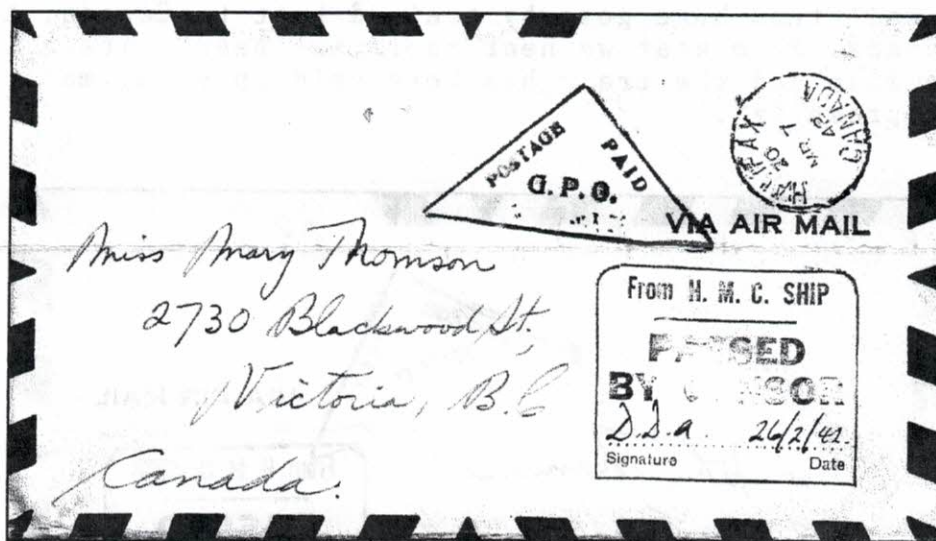 POSTAGE PAID
G.P.O.
HALIFAX
20
MR 7
42
CANADA
VIA AIR MAIL
Miss Mary Thomson
2730 Blackwood St.,
Victoria, B.C
Canada.
From H. M. C. SHIP
PASSED
BY CENSOR
D.D.A. 26/2/42.
Signature Date